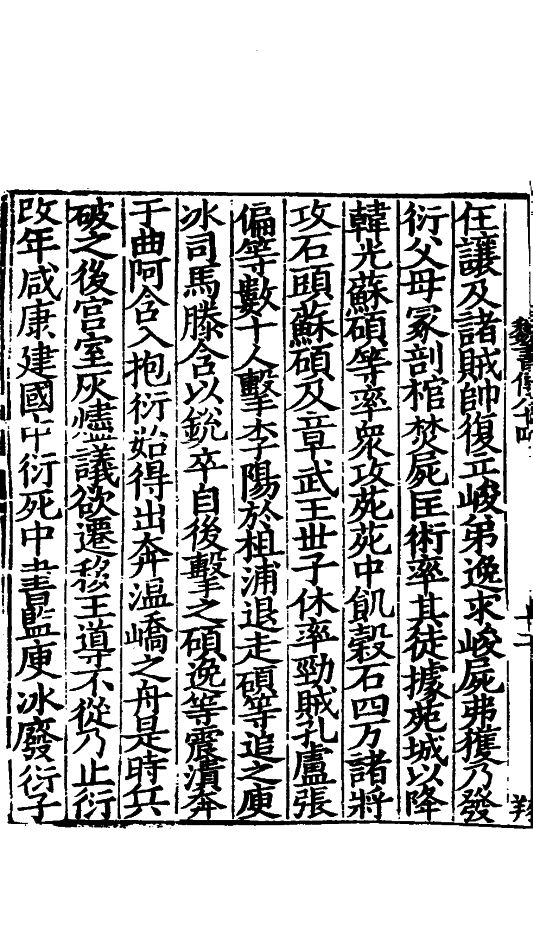 任讓及諸賊帥復立峻弟逸求峻屍弗獲乃發
衍父母冢剖棺焚屍匡術率其徒據苑城以降
韓光蘇碩等率衆攻苑苑中飢穀石四万諸將
攻石頭蘇碩及章武王世子休率勁賊孔盧張
偏等數十人擊李陽於柤浦退走碩等追之庾
冰司馬滕含以銳卒自後擊之碩逸等震潰奔
于曲阿含入抱衍始得出奔温嶠之舟是時兵
破之後宫室灰燼議欲遷移王導不從乃止衍
改年咸康建國中衍死中書監庾冰廢衍子